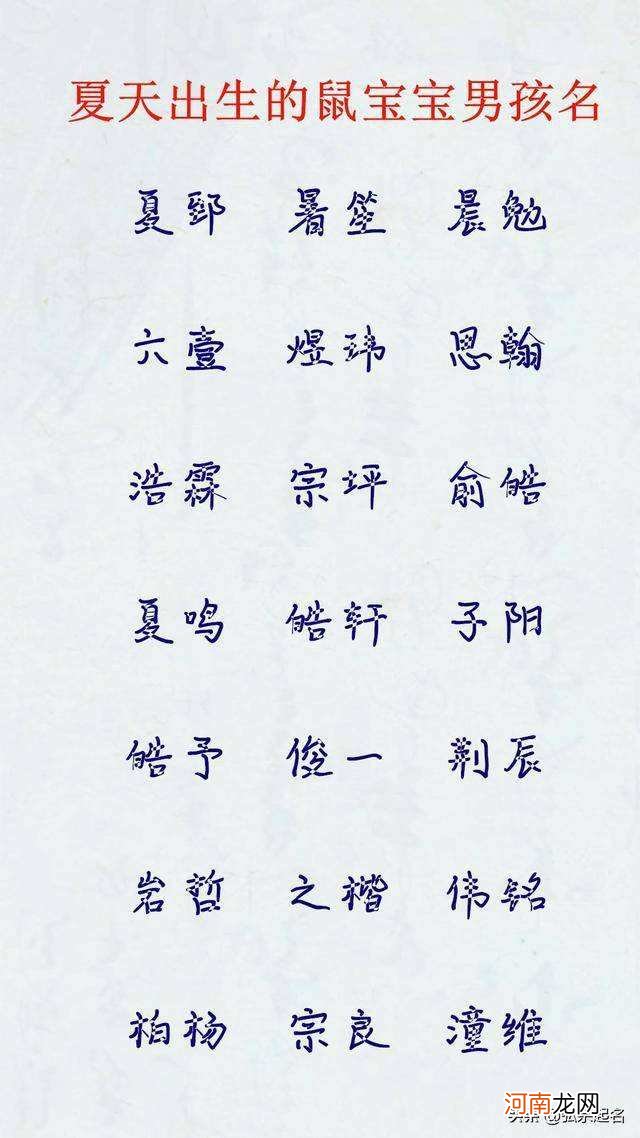 夏天出生的鼠宝宝男孩名
夏郅 暑笙 晨勉
六壹 煜玮 思翰
浩霖 宗坪 俞皓
夏鸣 皓轩 子阳
皓予 俊一 荆辰
岩哲 之楷 伟铭
柏杨 宗良 潼维
河南龙网
头条 @弘亲起名